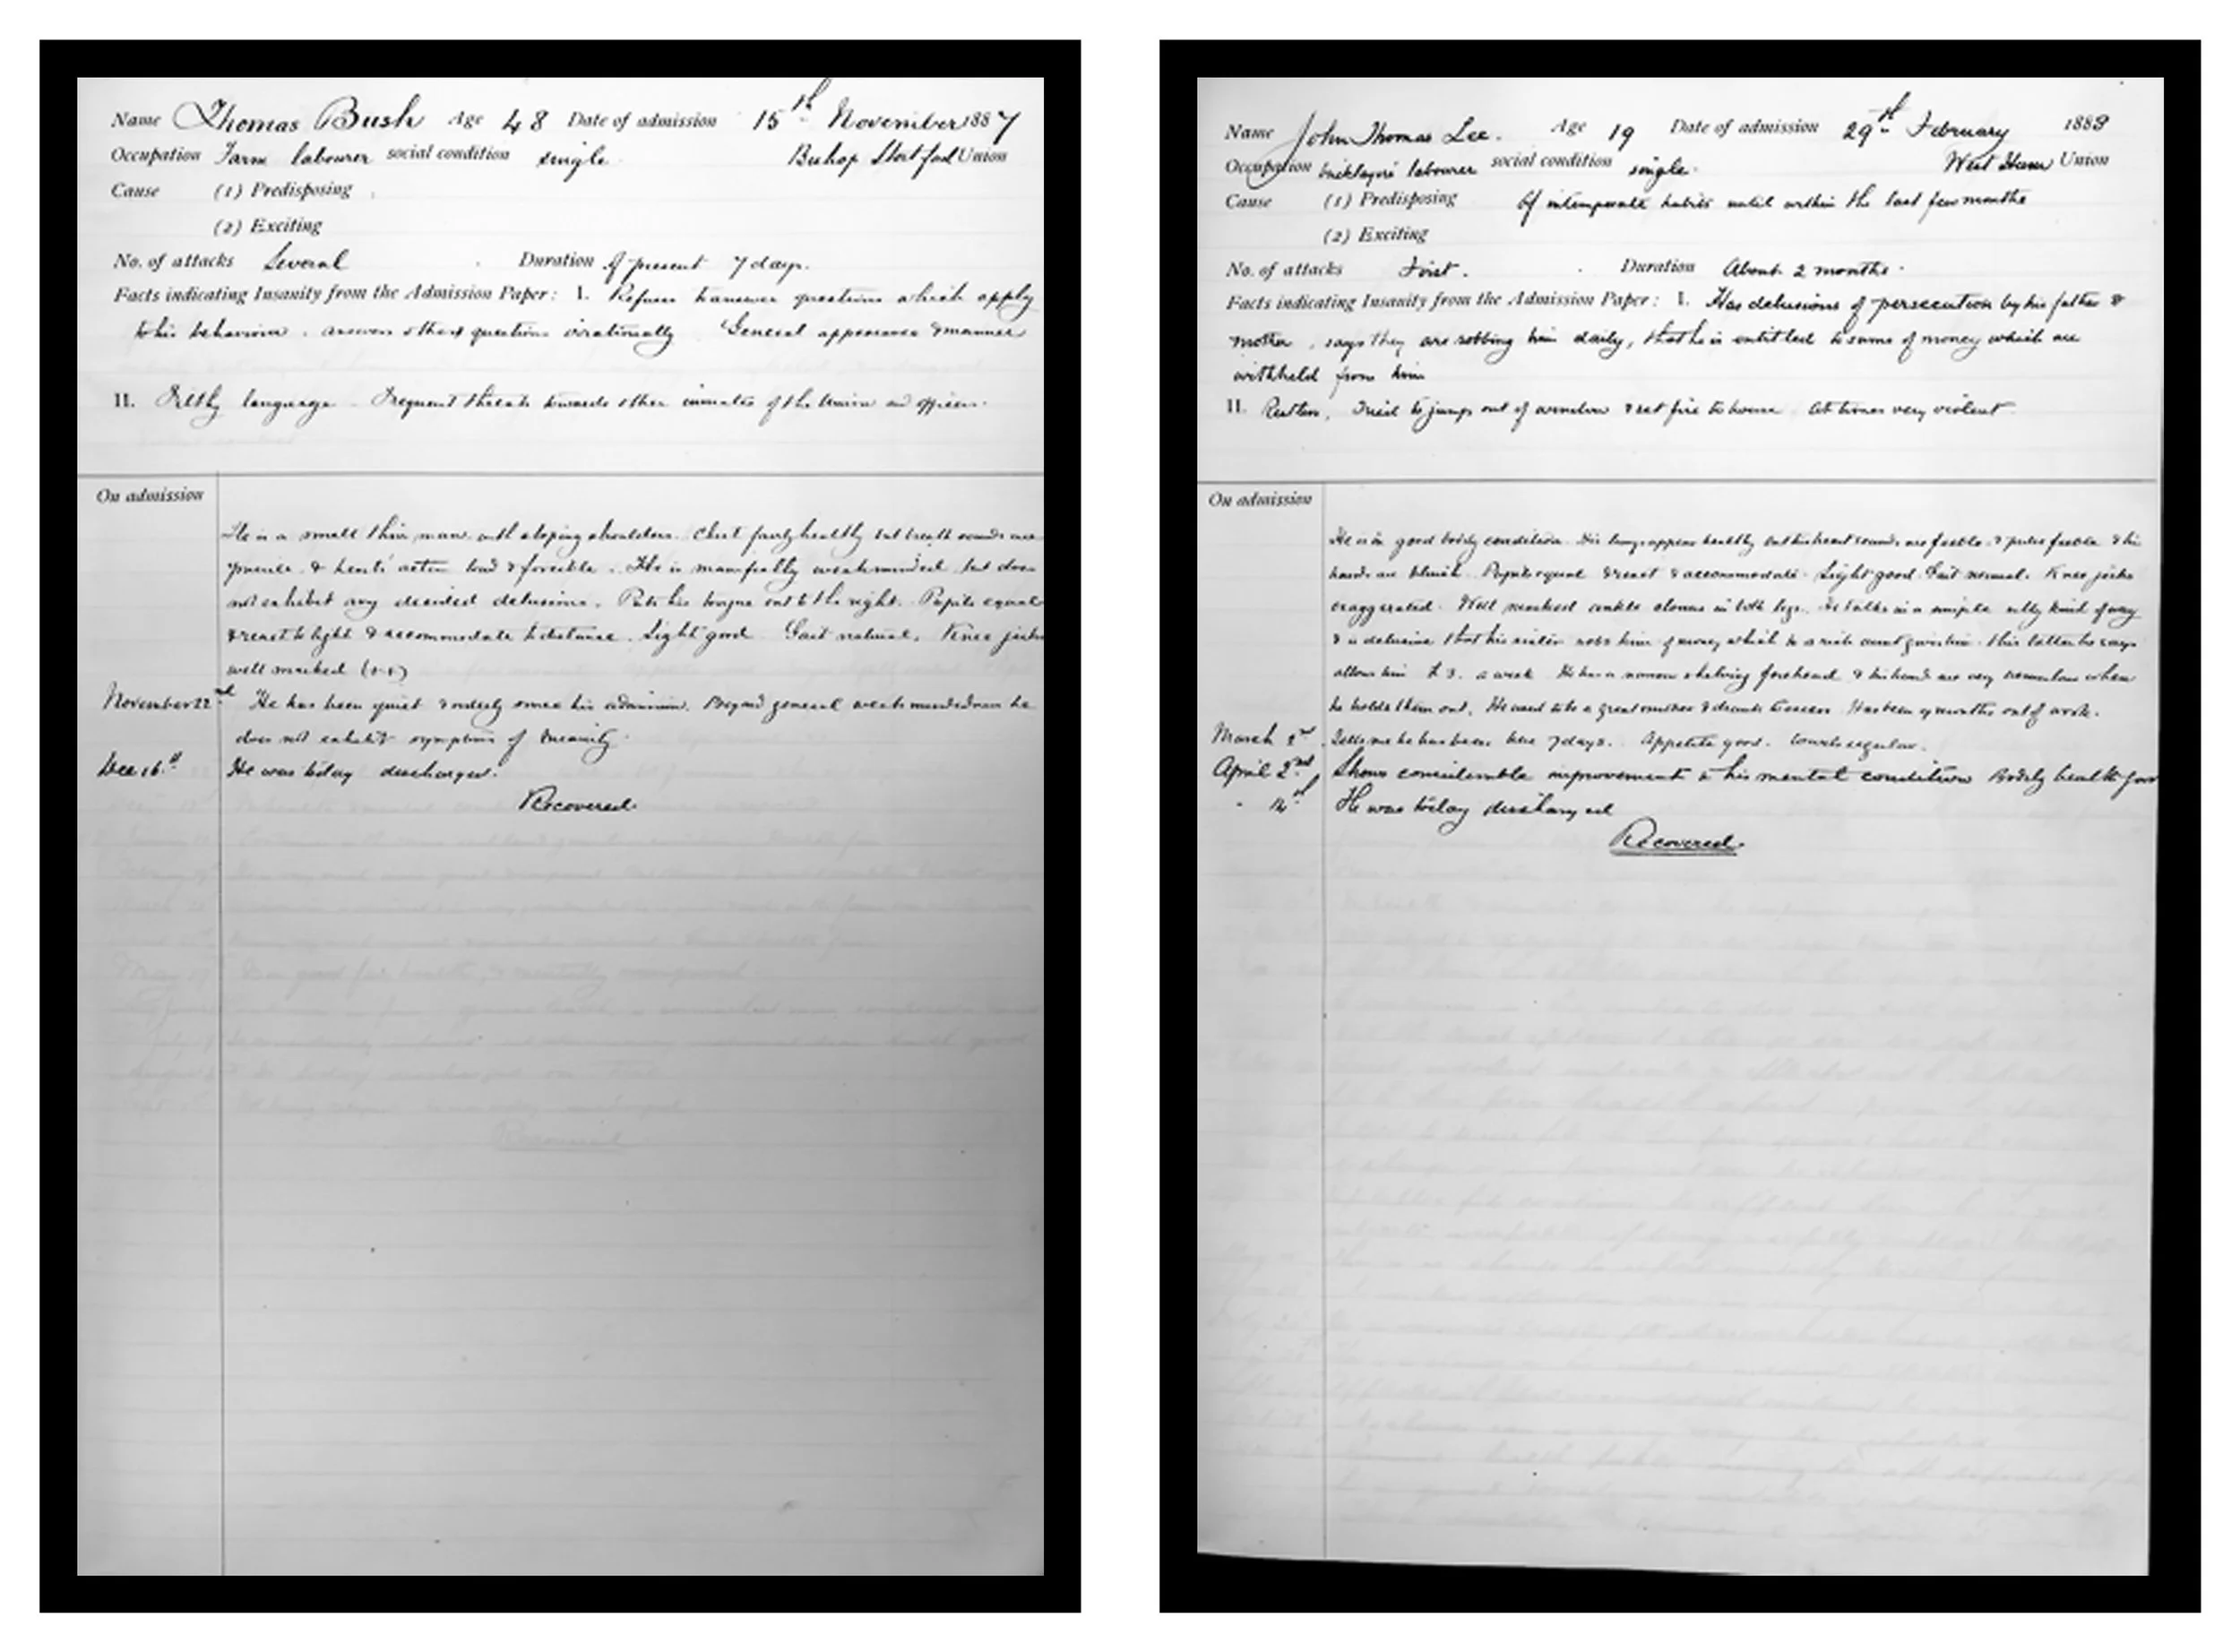 Name Thomas Bush Age 48 Date of admission 15th November 1887
Occupation Farm labourer social condition single Bishop Stortford Union
Cause (1) Predisposing
(2) Exciting
No. of attacks Several Duration of present 7 days.
Facts indicating Insanity from the Admission Paper: I. Refuses to answer questions which apply
to his behaviour, answers other questions irrationally General appearance & manner
II. Filthy language - Frequent threats towards other inmates of the Union and officers.
On admission
He is a small thin man with sloping shoulders. Chest fairly healthy but breath sounds are
puerile & heart's action loud & forcible. He is manifestly weakminded but does
not exhibit any decided delusions. Puts his tongue out to the right. Pupils equal
& react to light & accommodate to distance. Sight good Gait natural. Knee jerks
well marked
November 22nd He has been quiet & orderly since his admission. Beyond general weakmindedness he
does not exhibit symptoms of Insanity.
Dec 16th He was today discharged.
Recovered
Name John Thomas Lee. Age 19 Date of admission 29th February 1888
Occupation bricklayers' labourer social condition single. West Ham Union
Cause (1) Predisposing Of intemperate habits until within the last few months
(2) Exciting
No. of attacks First. Duration About 2 months.
Facts indicating Insanity from the Admission Paper: I. Has delusions of persecution by his father &
mother, says they are robbing him daily, that he is entitled to sums of money which are
withheld from him
II. Restless, Tried to jump out of window & set fire to house At times very violent
On admission
He is in good bodily condition. His lungs appear healthy but his heart sounds are feeble & pulse feeble & his
hands are bluish. Pupils equal & react & accommodate. Sight good. Gait normal. Knee jerks
exaggerated. Well marked ankle clonus in both legs. He talks in a simple silly kind of way
& is delusive that his sister robs him of money which a rich aunt gives him. This latter he says
allows him £3. a week He has a narrow shelving forehead & his hands are very tremulous when
he holds them out. He used to be a great & drank to excess Has been months out of work.
March 2nd Tells me he has been here 7 days. Appetite good. bowels regular.
April 2nd Shows considerable improvement in his mental condition Bodily health good
" 14th He was today discharged
Recovered.